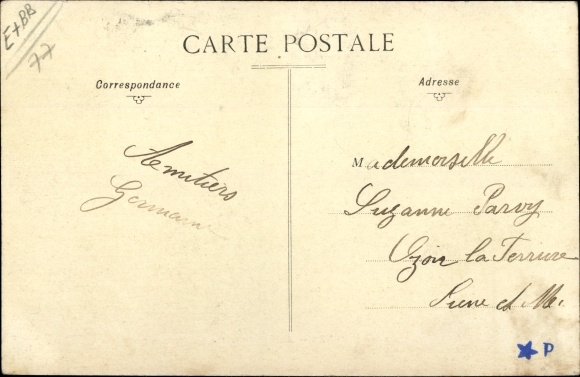 E+BB
77
CARTE POSTALE
Correspondance
Adresse
Amitiers
Germaine
Mademoiselle
Suzanne Parvy
Ozoir la Ferriere
Seine et Me.
★P